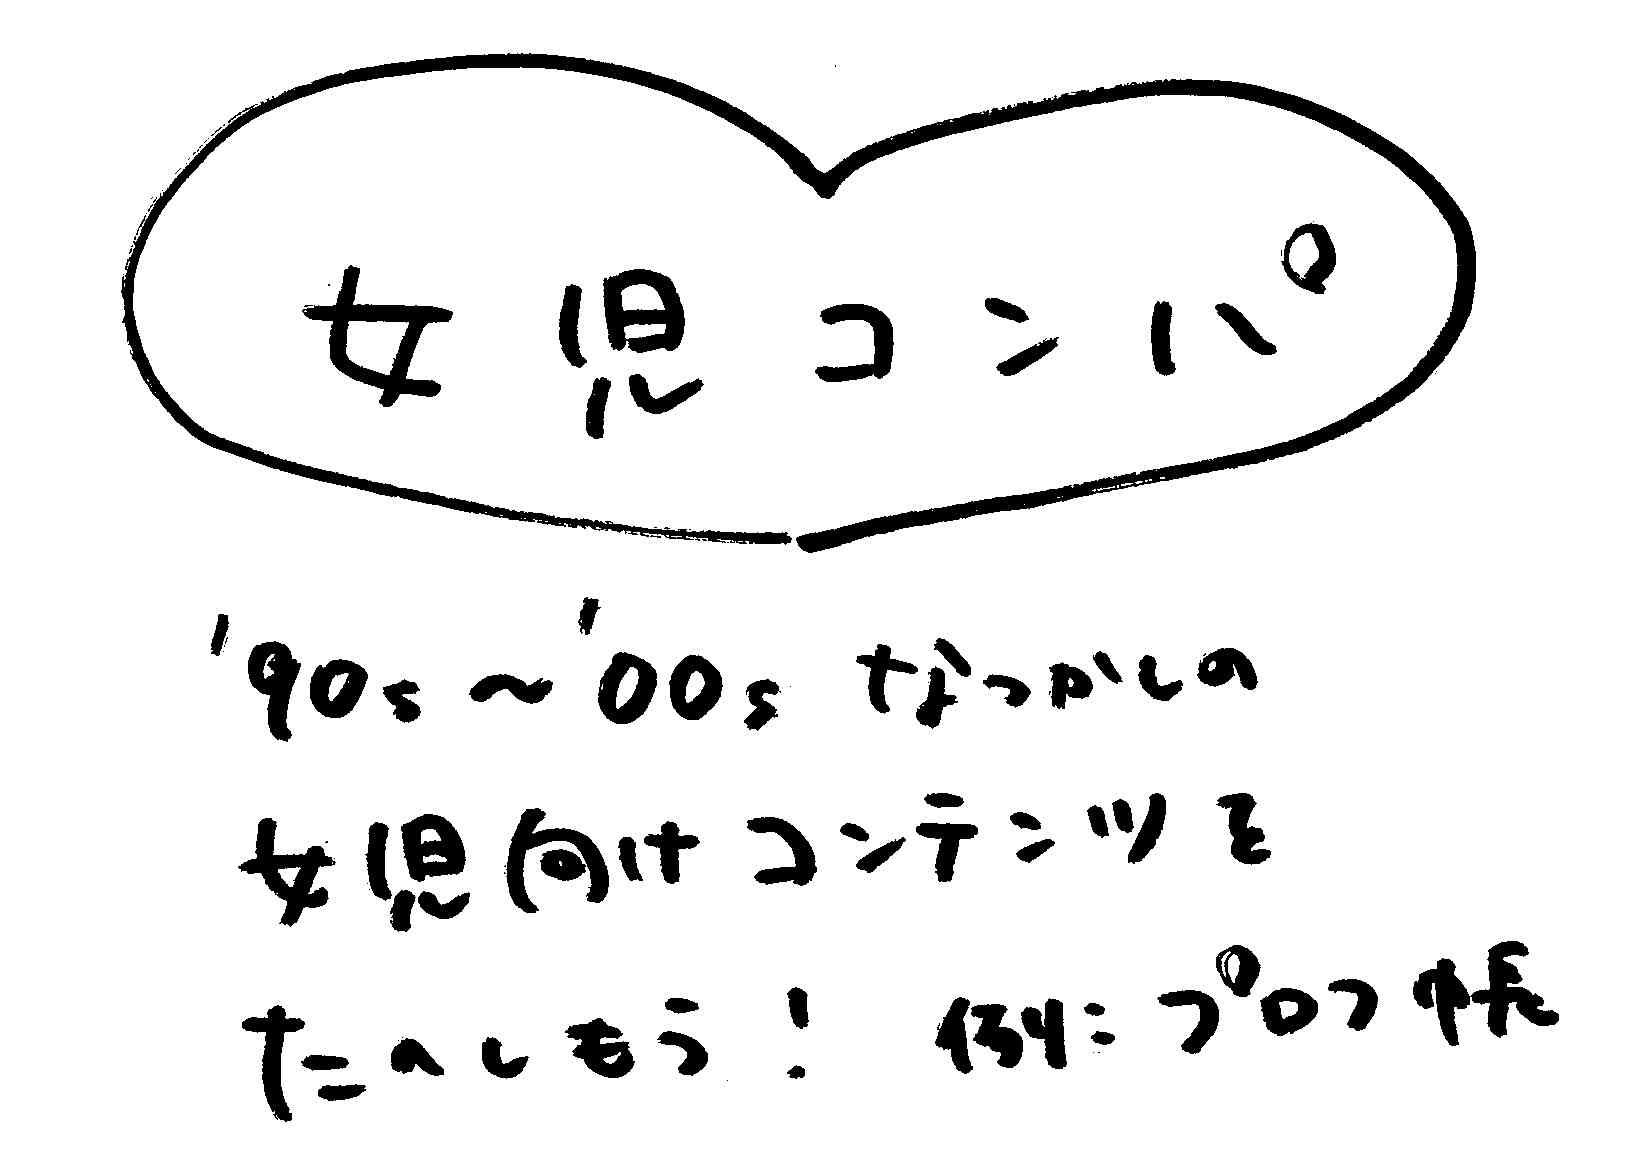 女児コンパ
'90s〜'00s なつかしの
女児向けコンテンツを
たのしもう! 例:プロフ帳